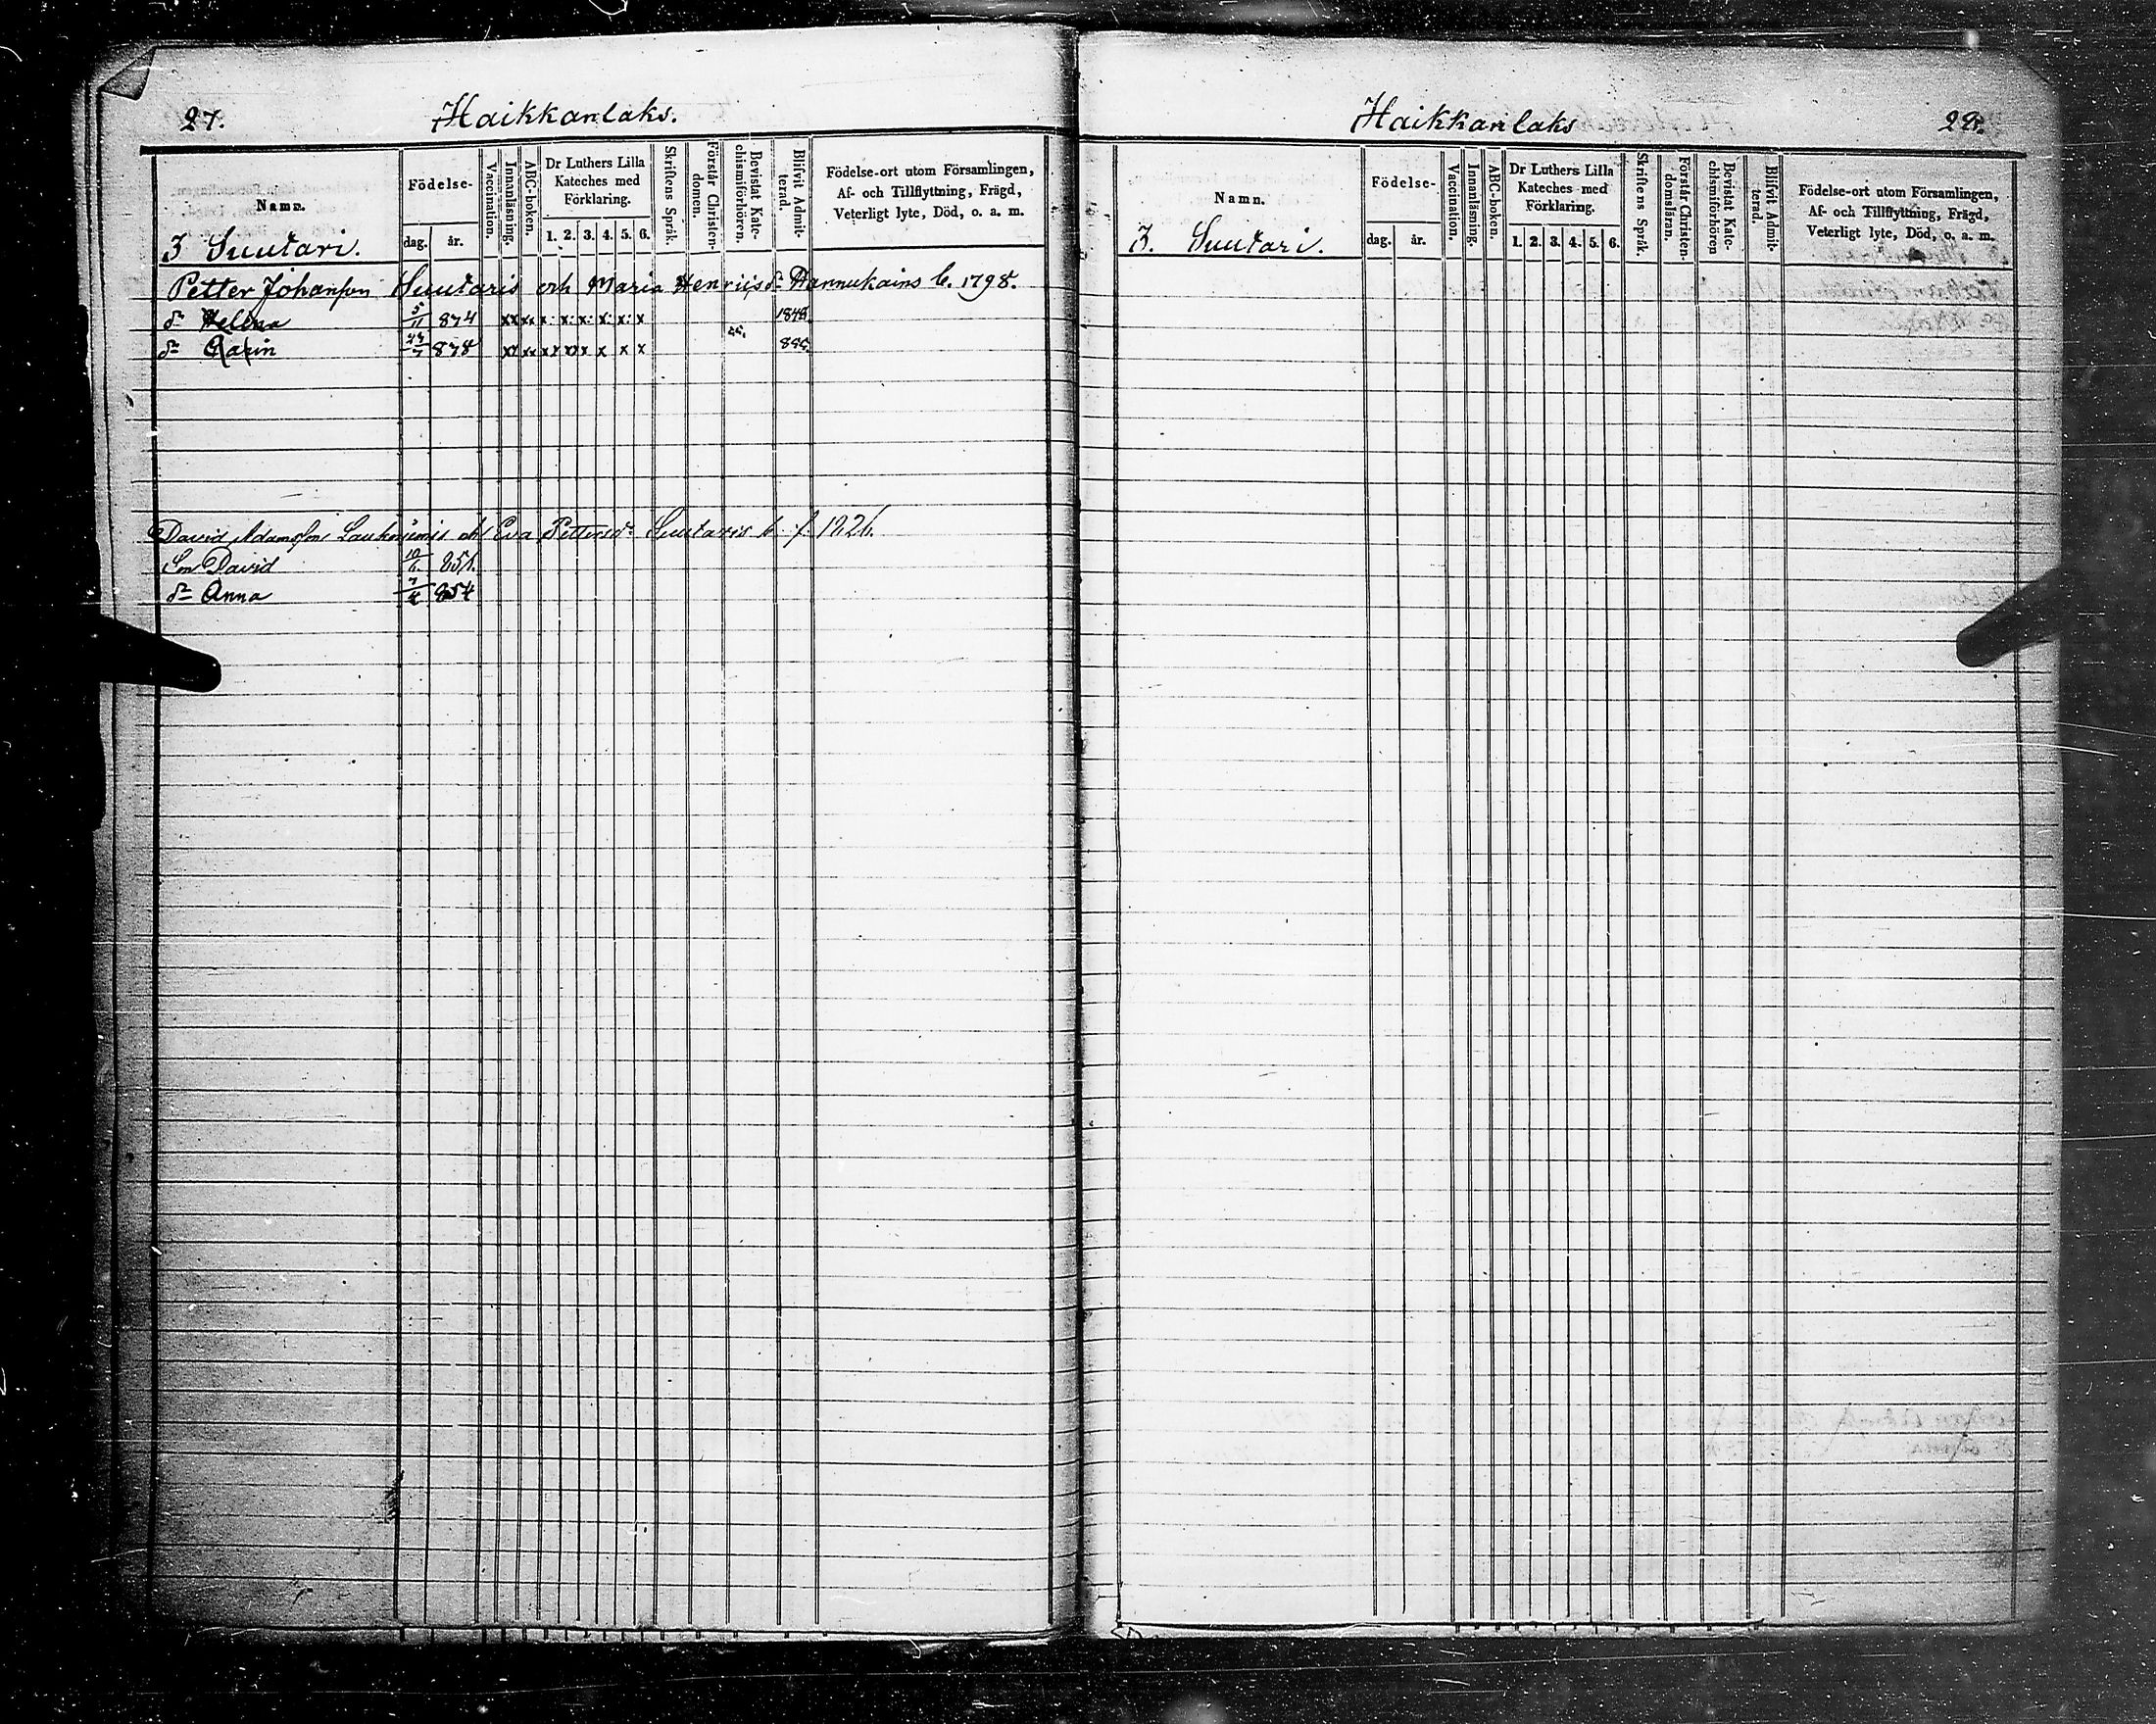 27.
Haikkanlaks.
Namn.
Födelse-
dag.
år.
Vaccination.
Innanläsning.
ABC-boken.
Dr Luthers Lilla
Kateches med
Förklaring.
1. 2. 3. 4. 5. 6.
Skriftens Språk.
Förstår Christen-
domen.
Bevistat Kate-
chismiförhören.
Blifvit Admit-
terad.
Födelse-ort utom Församlingen,
Af- och Tillflyttning, Frägd,
Veterligt lyte, Död, o. a. m.
3 Suutari.
Petter Johansson Suutaris och Maria Henriisdr Hannukains b. 1798.
dr Helena 5/11 834 xx xx x: x: x: x: x: x 1848
dr Carin 838 xx xx xx xx x x x x
David Adamsson och Eva Pettersdr Suutaris b. f. 1826.
Son David 10/6
dr Anna 7/4 854
Haikkanlaks
28.
Namn.
Födelse-
dag.
år.
Vaccination.
Innanläsning.
ABC-boken.
Dr Luthers Lilla
Kateches med
Förklaring.
1. 2. 3. 4. 5. 6.
Skriftens Språk.
Förstår Christen-
domsläran.
Bevistat Kate-
chismiförhören
Blifvit Admit-
terad.
Födelse-ort utom Församlingen,
Af- och Tillflyttning, Frägd,
Veterligt lyte, Död, o. a. m.
3. Suutari.